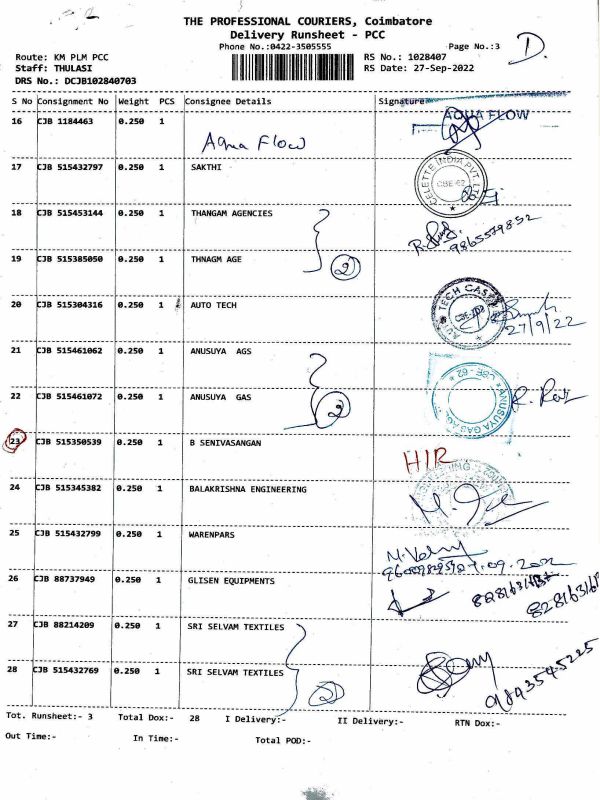 THE PROFESSIONAL COURIERS, Coimbatore
Delivery Runsheet - PCC
Phone No.:0422-3505555
Page No.:3
D.
Route: KM PLM PCC
RS No.: 1028407
Staff: THULASI
RS Date: 27-Sep-2022
DRS No.: DCJB102840703
S No Consignment No Weight PCS Consignee Details Signature
16 CJB 1184463 0.250 1 AQUA FLOW
Aqua Flow
17 CJB 515432797 0.250 1 SAKTHI
CELETTE INDIA PVT LTD
CBE-62
18 CJB 515453144 0.250 1 THANGAM AGENCIES
9865579852
19 CJB 515385050 0.250 1 THNAGM AGE
2
20 CJB 515304316 0.250 1 AUTO TECH
AUTO TECH GAS
27/9/22
21 CJB 515461062 0.250 1 ANUSUYA AGS
22 CJB 515461072 0.250 1 ANUSUYA GAS
2
ANUSUYA GAS
CBE - 62
23 CJB 515350539 0.250 1 B SENIVASANGAN
HIR
24 CJB 515345382 0.250 1 BALAKRISHNA ENGINEERING
25 CJB 515432799 0.250 1 WARENPARS
26 CJB 88737949 0.250 1 GLISEN EQUIPMENTS
27 CJB 88214209 0.250 1 SRI SELVAM TEXTILES
28 CJB 515432769 0.250 1 SRI SELVAM TEXTILES
2
9843545225
Tot. Runsheet:- 3 Total Dox:- 28 I Delivery:- II Delivery:- RTN Dox:-
Out Time:- In Time:- Total POD:-